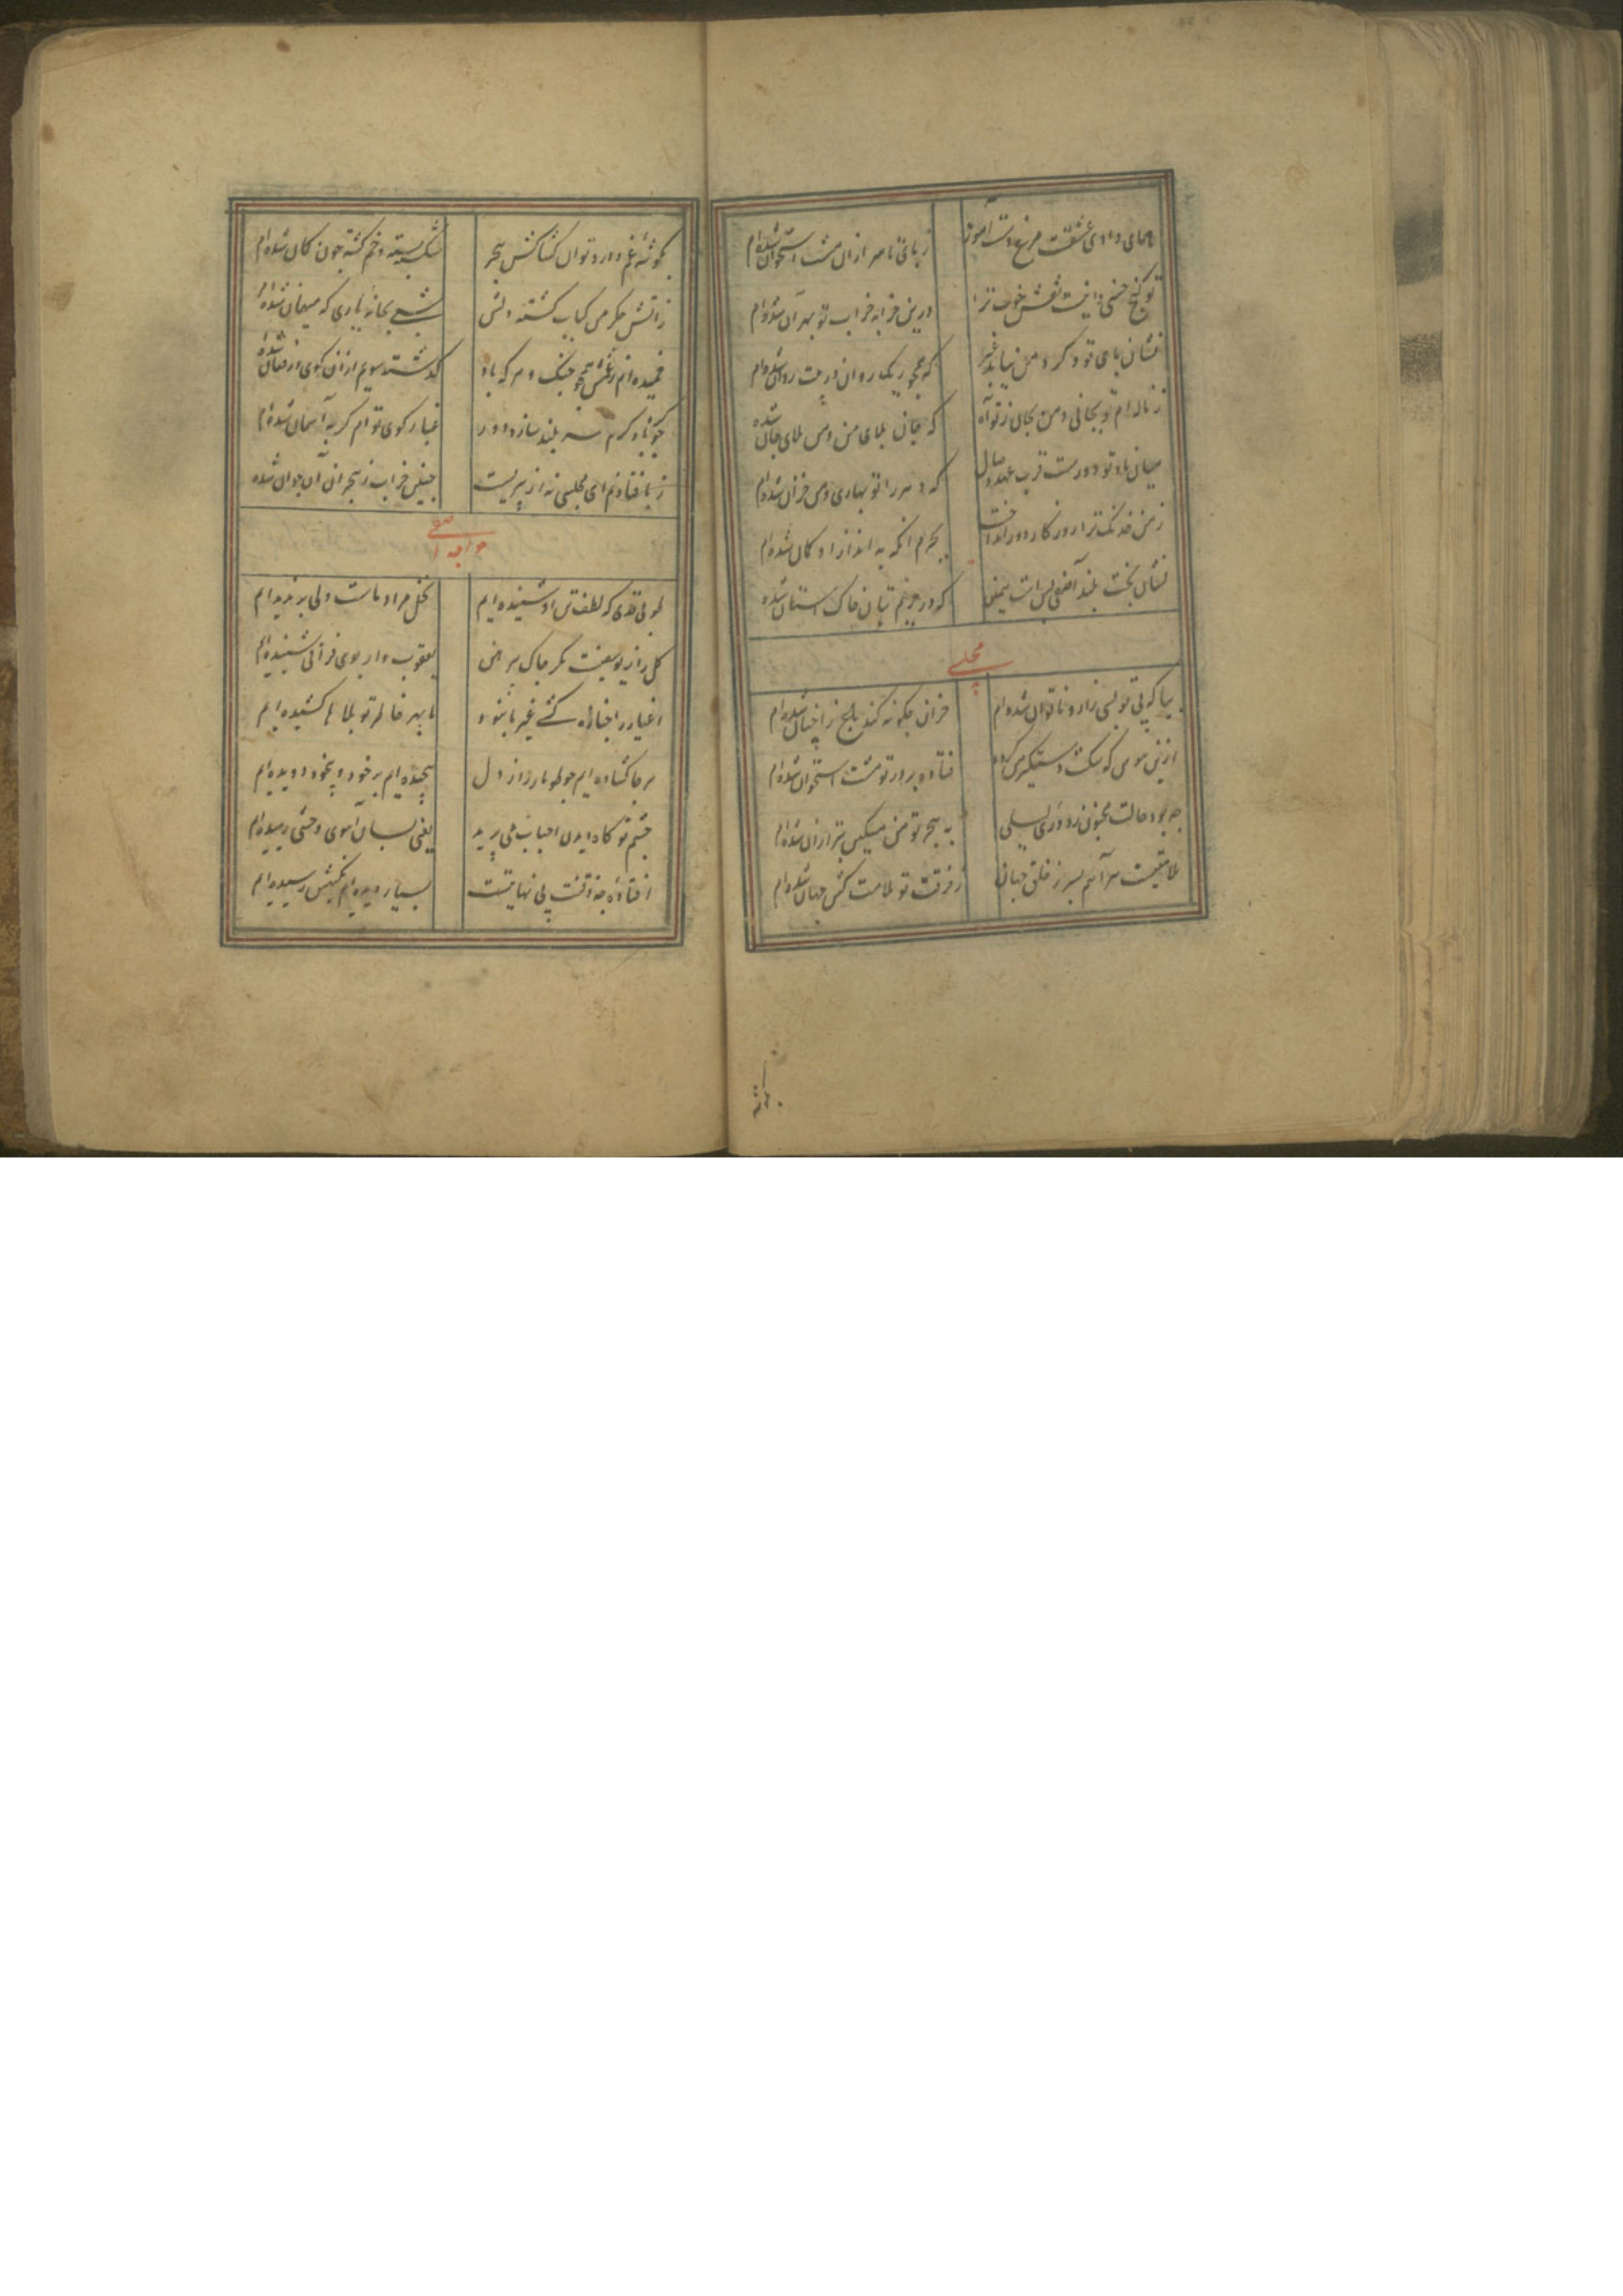 همای وادی عشقت مرغ دست آموز
زبانی تا سر ازان مشت استخوان شده ام
تو گنج حسنی و نقش خوب ترا
درین خرابه خراب تو بهر آن شده ام
نشان پای تو و کرد من نیابد غیر
که همچو ریک روان در پیت روان شده ام
ز ناله ام تو بجانی و من بجان ز تو آه
که جان بلای من و من بلای جان شده
میان ما و تو دورست قرب عهد وصال
که دهر را تو بهاری و من خزان شده ام
ز من خدنک ترا روزکار دور انداخت
بجرم انکه به انداز او کمان شده ام
نشان بخت بلند آصفی بس است یعنی
که در حریم بتان خاک استان شده
مجلسی
بیا که بی تو بسی زار و ناتوان شده ام
خزان چکونه کند باخ را چنان شده ام
ازین هوس که سکت دستکیر من کردد
فتاده بر در تو مشت استخوان شده ام
چه بود حالت مجنون ز دوری لیلی
به هجر تو من مسکین بتر ازان شده ام
ملامتیست سر آسر ز خلق جهان
ز فرقت تو ملامت کش جهان شده ام
بکوشه غم و درد توان کشاکش هجر
شکسته بسته و خم کشته چون کمان شده ام
ز آتش جکر من کباب کشته دلش
شبی بخانه یاری که میهمان شده ام
خمیده ام ز غمش همچو چنک و هر که باد
کذشته سویم ازان کوی در فغان شده
چو باد کرم سر بلند سازد دور
غبار کوی تو ام کر به آسمان شده ام
ز پا فتادنم ای مجلسی نه از پیریست
چنین خراب ز هجران آن جوان شده
خواجه اصفی
طوبی قدی که لطفش ازو شنیده ایم
نخل مراد ماست ولی بر ندیده ایم
کل راز یوسفیست مکر چاک پیرهن
یعقوب وار بوی فراقی شنیده ایم
اغیار را جنازه کشی غیر ما نبود
ما بهر خاطر تو بلاها کشیده ایم
هر جا کشاده ایم چو طومار راز دل
پیچیده ایم بر خود و بیخود دویده ایم
چشم تو کاه دیدن احباب می پرید
یعنی بسان آهوی وحشی رمیده ایم
افتاده چه ذقنت بی نهایتست
بسیار دیده ایم بکنهش رسیده ایم